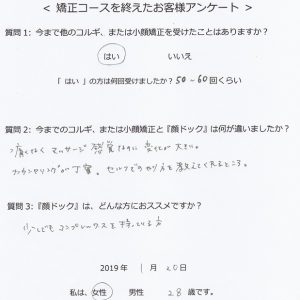 < 矯正コースを終えたお客様アンケート >
質問 1: 今まで他のコルギ、または小顔矯正を受けたことはありますか?
はい いいえ
「 はい 」の方は何回受けましたか? 50~60回くらい
質問 2: 今までのコルギ、または小顔矯正と『顔ドック』は何が違いましたか?
痛くなく マッサージ感覚なのに 変化が大きい。
カウンセリングが丁寧。セルフでのやり方を教えてくれるところ。
質問 3:『顔ドック』は、どんな方におススメですか?
少しでもコンプレックスを持っている方
2019 年 1 月 20 日
私は、女性 男性 28 歳です。